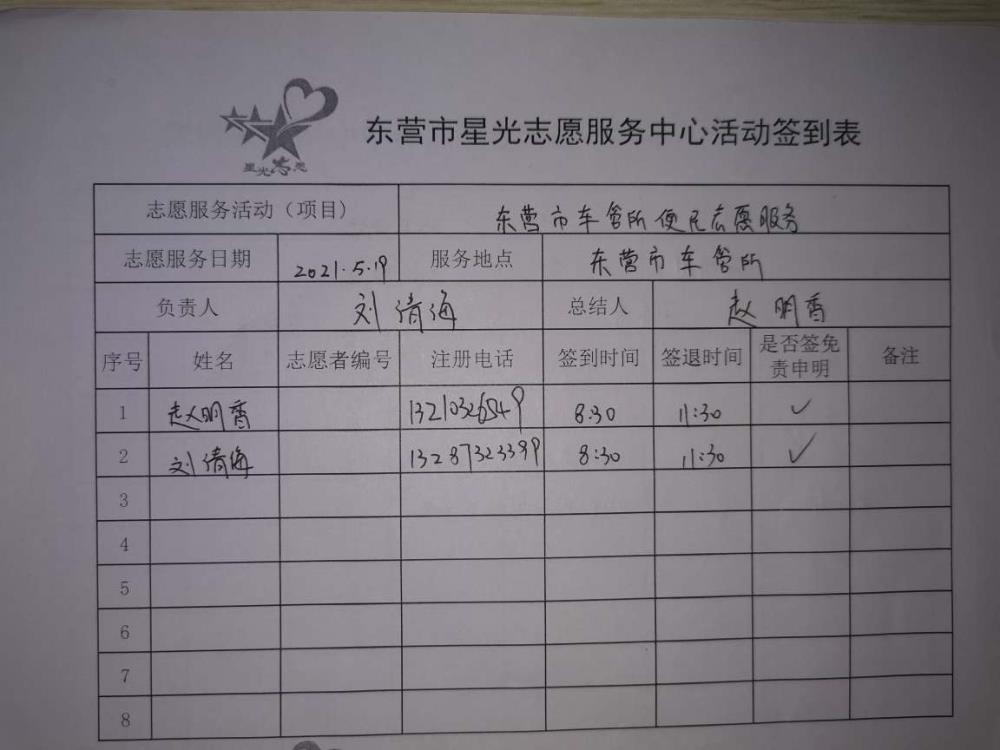 星光志愿
东营市星光志愿服务中心活动签到表
志愿服务活动（项目） 东营市车管所便民志愿服务
志愿服务日期 2021.5.19 服务地点 东营市车管所
负责人 刘倩海 总结人 赵明香
序号 姓名 志愿者编号 注册电话 签到时间 签退时间 是否签免责申明 备注
1 赵明香 13210326549 8:30 11:30 ✓
2 刘倩海 13287323399 8:30 11:30 ✓
3
4
5
6
7
8